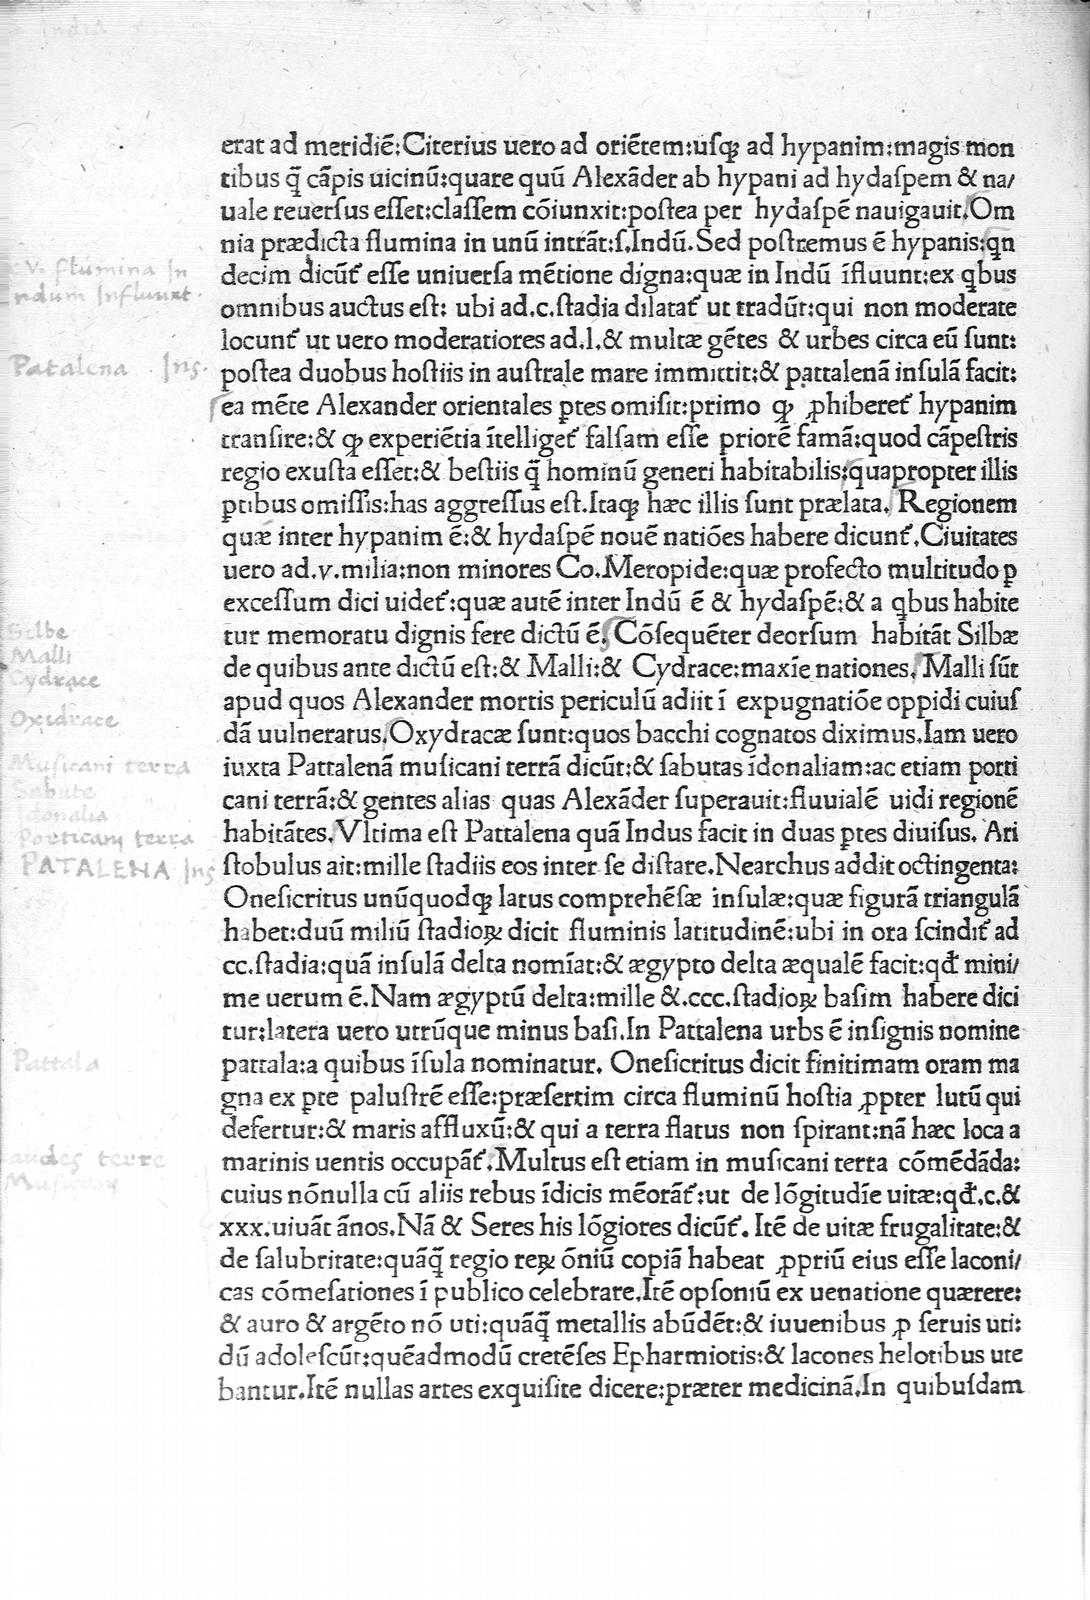 erat ad meridiē:Citerius uero ad oriētem:uſqꝫ ad hypanim:magis mon
tibus q̄ cāpis uicinū:quare quū Alexāder ab hypani ad hydaſpem & na/
uale reuerſus eſſet:claſſem cōiunxit:poſtea per hydaſpē nauigauit.Om
nia prædicta flumina in unū intrāt:ſ.Indū.Sed poſtremus ē hypanis:qn
decim dicūt᷑ eſſe uniuerſa mētione digna:quæ in Indū īfluunt:ex qbus
omnibus auctus eſt: ubi ad.c.ſtadia dilatat᷑ ut tradūt:qui non moderate
locunt᷑ ut uero moderatiores ad.l.& multæ gētes & urbes circa eū ſunt:
poſtea duobus hoſtiis in auſtrale mare immittit:& pattalenā inſulā facit:
ea mēte Alexander orientales ꝑtes omiſit:primo qꝫ ꝓhiberet᷑ hypanim
tranſire:& qꝫ experiētia ītelliget᷑ falſam eſſe priorē famā:quod cāpeſtris
regio exuſta eſſet:& beſtiis q̄ hominū generi habitabilis:quapropter illis
ꝑtibus omiſſis:has aggreſſus eſt.Itaqꝫ hæc illis ſunt prælata. Regionem
quæ inter hypanim ē:& hydaſpē nouē natiōes habere dicunt᷑.Ciuitates
uero ad.v.milia:non minores Co.Meropide:quæ profecto multitudo ꝑ
exceſſum dici uidet᷑:quæ autē inter Indū ē & hydaſpē:& a qbus habite
tur memoratu dignis fere dictū ē. Cōſequēter deorſum habitāt Silbæ
de quibus ante dictū eſt:& Malli:& Cydrace:maxīe nationes. Malli ſūt
apud quos Alexander mortis periculū adiit ī expugnatiōe oppidi cuiuſ
dā uulneratus.Oxydracæ ſunt:quos bacchi cognatos diximus.Iam uero
iuxta Pattalenā muſicani terrā dicūt:& ſabutas īdonaliam:ac etiam porti
cani terrā:& gentes alias quas Alexāder ſuperauit:fluuialē uidi regionē
habitātes.Vltima eſt Pattalena quā Indus facit in duas ꝑtes diuiſus. Ari
ſtobulus ait:mille ſtadiis eos inter ſe diſtare.Nearchus addit octingenta:
Oneſicritus unūquodqꝫ latus comprehēſæ inſulæ:quæ figurā triangulā
habet:duū miliū ſtadioꝝ dicit fluminis latitudinē:ubi in ora ſcindit᷑ ad
cc.ſtadia:quā inſulā delta nomīat:& ægypto delta æqualē facit:qđ mini/
me uerum ē.Nam ægyptū delta:mille &.ccc.ſtadioꝝ baſim habere dici
tur:latera uero utrūque minus baſi.In Pattalena urbs ē inſignis nomine
pattala:a quibus īſula nominatur. Oneſicritus dicit finitimam oram ma
gna ex ꝑte paluſtrē eſſe:præſertim circa fluminū hoſtia ꝓpter lutū qui
defertur:& maris affluxū:& qui a terra flatus non ſpirant:nā hæc loca a
marinis uentis occupāt᷑.Multus eſt etiam in muſicani terra cōmēdāda:
cuius nōnulla cū aliis rebus īdicis mēorāt᷑:ut de lōgitudīe uitæ:qđ.c.&
xxx.uiuāt ānos.Nā & Seres his lōgiores dicūt᷑. Itē de uitæ frugalitate:&
de ſalubritate:quāq̄ regio reꝝ ōniū copiā habeat ꝓpriū eius eſſe laconi/
cas cōmeſationes ī publico celebrare.Itē opſoniū ex uenatione quærere:
& auro & argēto nō uti:quāq̄ metallis abūdēt:& iuuenibus ꝓ ſeruis uti:
dū adoleſcūt:quēadmodū cretēſes Epharmiotis:& lacones helotibus ute
bantur.Itē nullas artes exquiſite dicere:præter medicinā.In quibuſdam
India
v. flumina In
ndum Influunt.
Patalena Ins.
Silbe
Malli
Cydrace
Oxidrace
Musicani terra
Sabute
Idonalia
Porticani terra
PATALENA Ins
Pattala
audes terre
Musicani